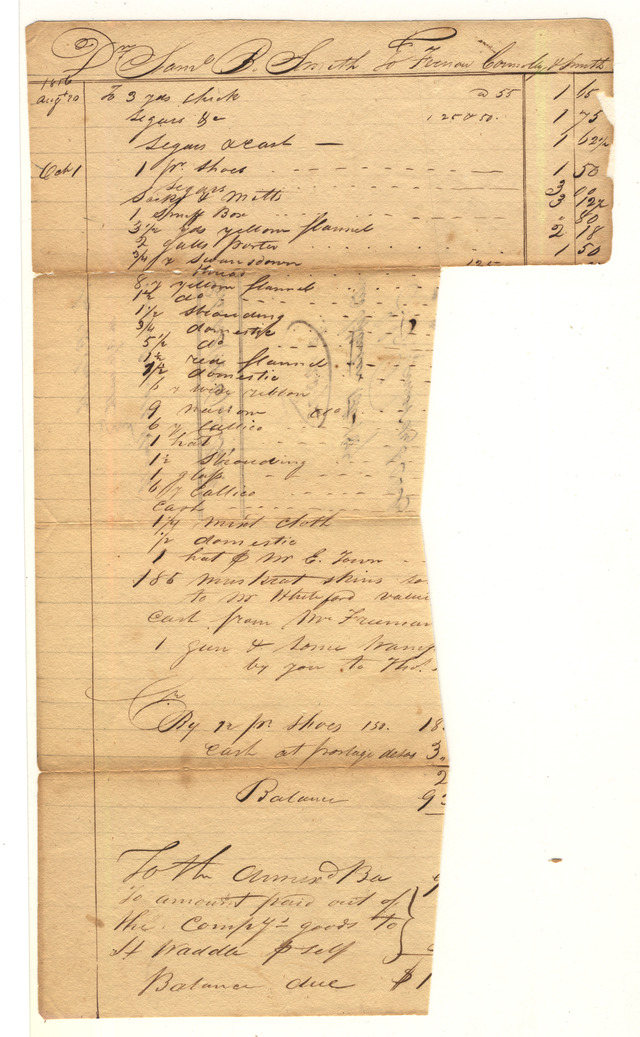 Dr. Saml. B. Smith To Conoly & Smith
1816
Augt 20 To 3 yds check @ 55 1 65
Segars &c 1 25 & 50 1 75
Segars & cash — 1 62½
Oct 1 1 pr. shoes 1 50
Segars
Socks & Mitts 3 12½
1 Snuff Box " 80
3½ yds yellow flannel 2 18
2 galls porter 1 50
Swansdown
thread
yellow flannel
1½ do
1½ strouding
3/4 domestic
5½ do
red flannel
domestic
wide ribbon
9 narrow do
6 y callico
1 hat
1½ strouding
1 glass
6 y Callico
Cash
cloth
½ domestic
1 hat p Mr E. Town
186 Muskrat skins
to Mr Whiteford value
Cash from Mr Freeman
1 gun & some
by you to Thos.
Cr
By 12 pr. shoes 150. 18
cash at portage 3
2
Balance 9
To the annexd Ba
To amount paid out of
the Compys goods to
H Waddle p self
Balance due $1